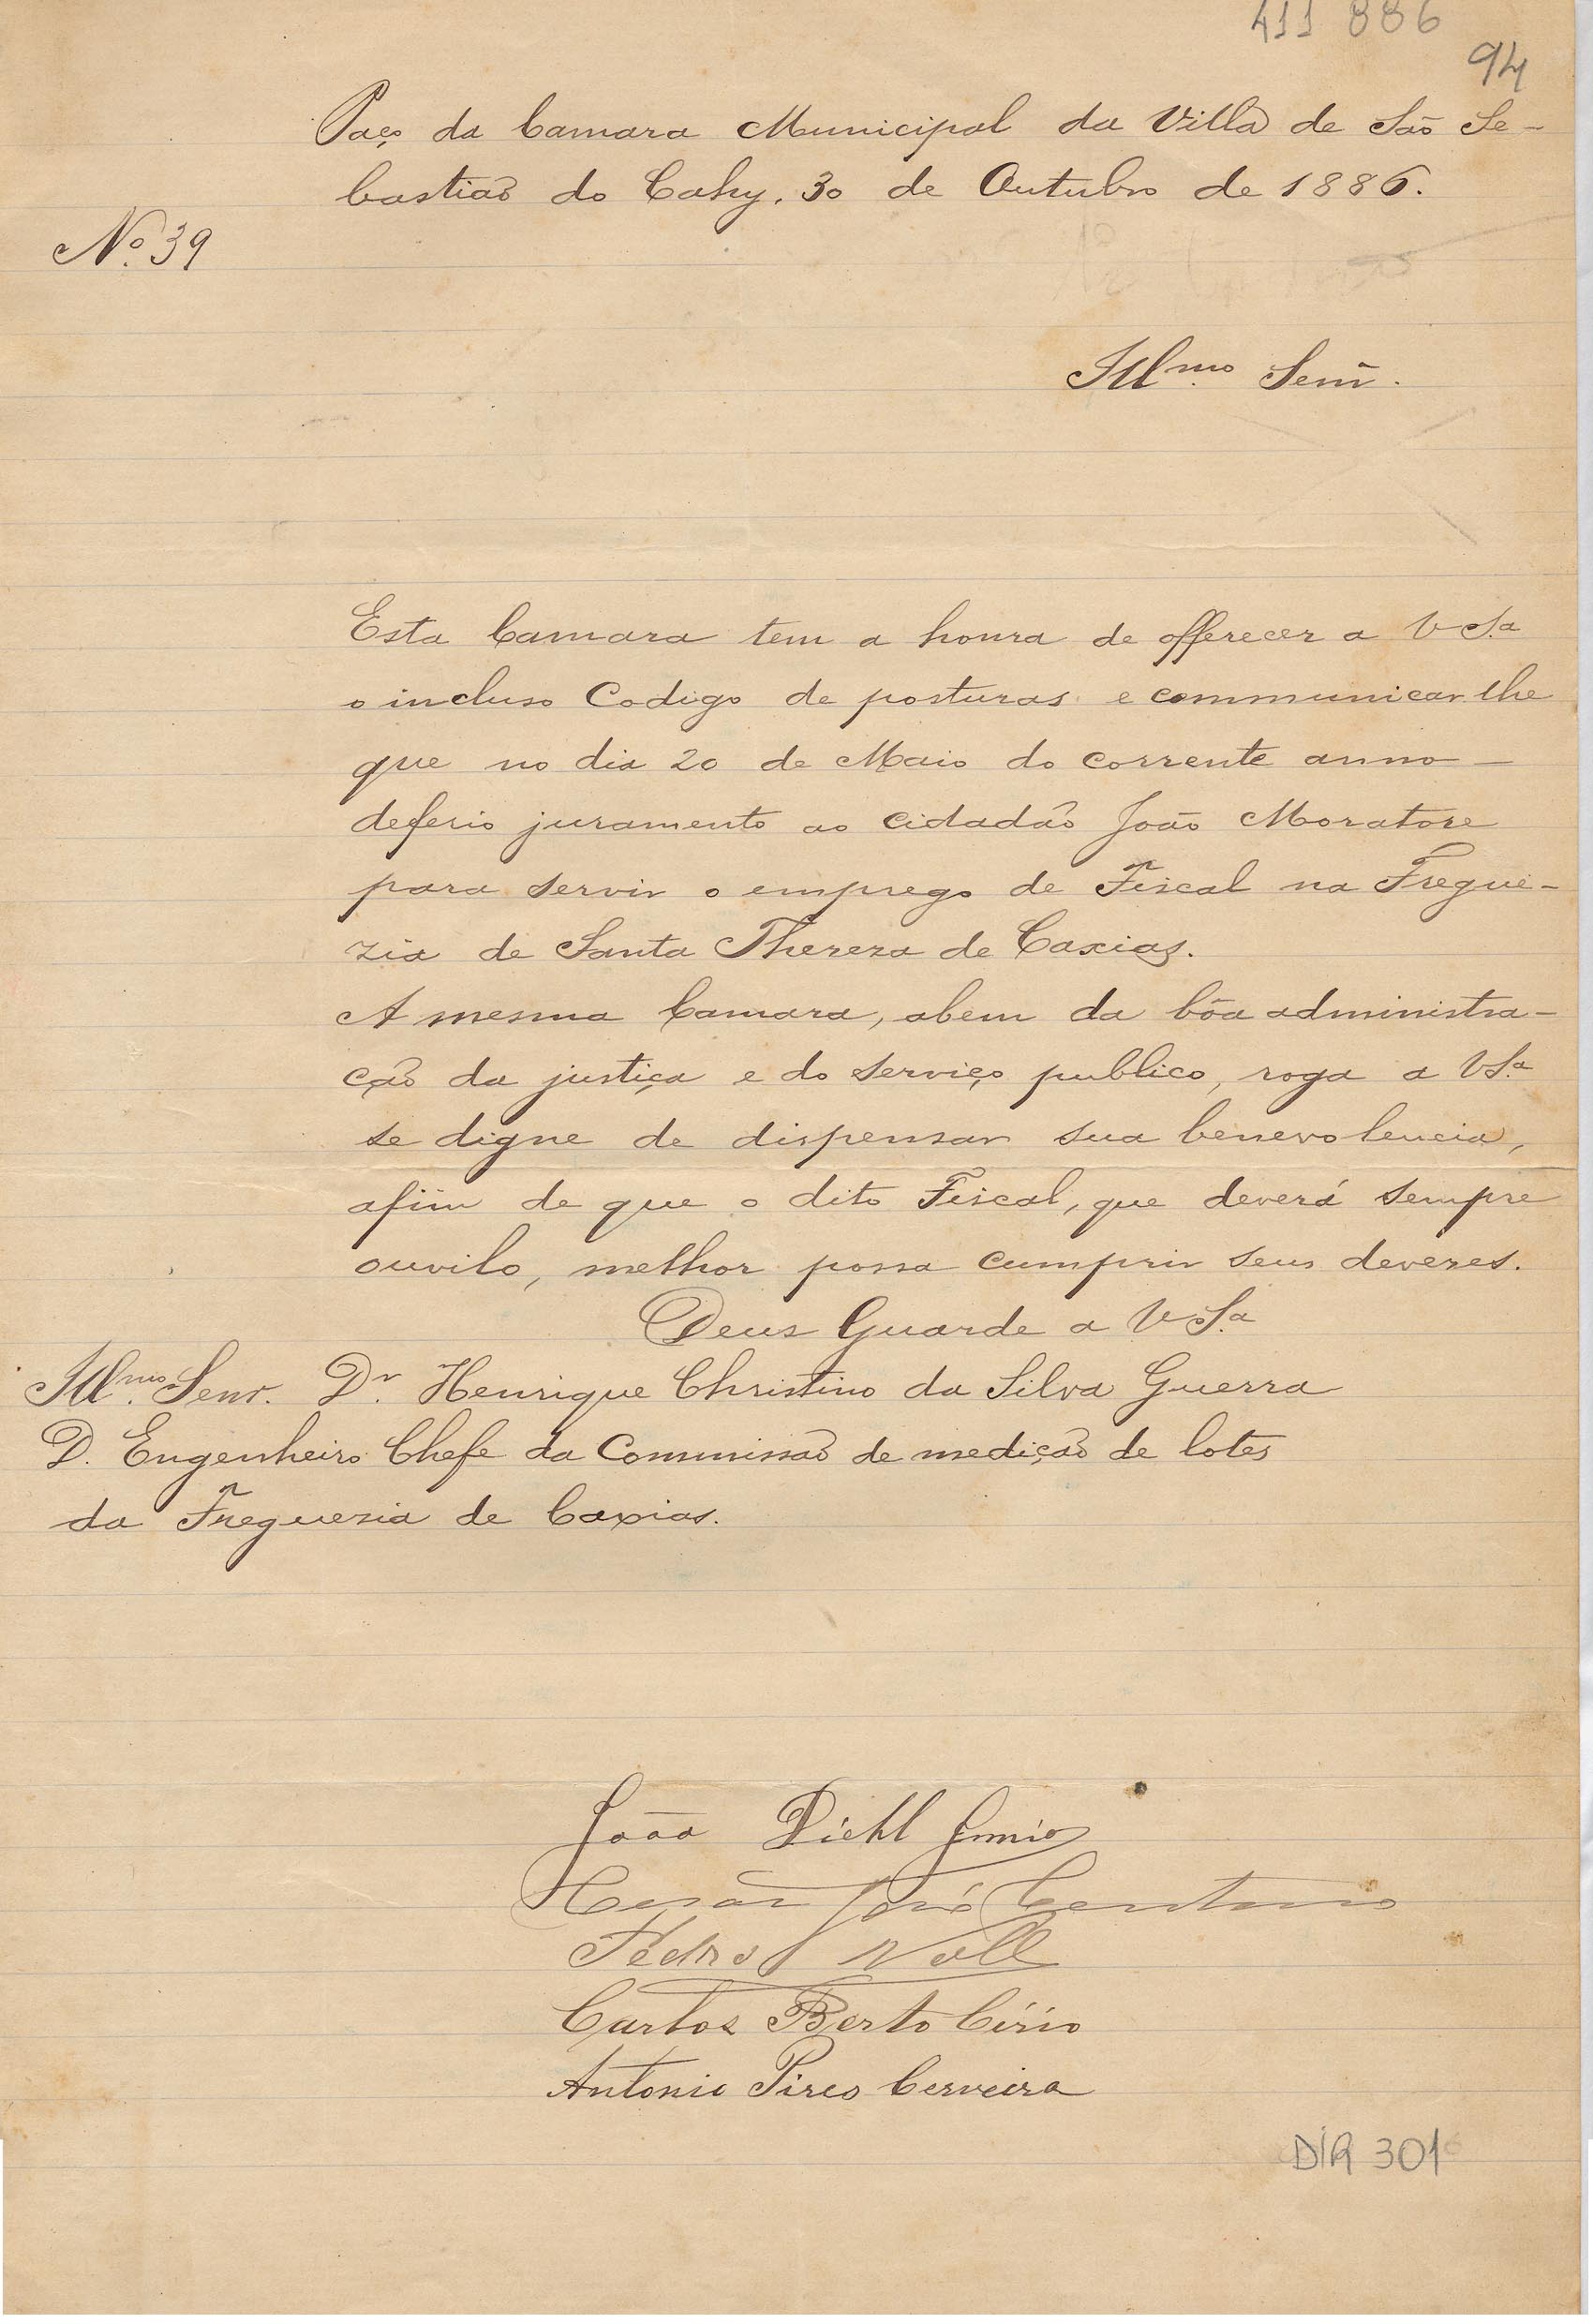 411 886
94
Paço da Camara Municipal da Villa de São Se-
bastião do Cahy, 30 de Outubro de 1886.
Nº 39
Illmo Senr.
Esta Camara tem a honra de offerecer a V Sa
o incluso Codigo de posturas e communicar lhe
que no dia 20 de Maio do corrente anno
deferio juramento ao cidadão João Moratore
para servir o emprego de Fiscal na Fregue-
zia de Santa Thereza de Caxias.
A mesma Camara, abem da bôa administra-
ção da justiça e do serviço publico, roga a VSa
se digne de dispensar sua benevolencia,
afim de que o dito Fiscal, que deverá sempre
ouvilo, melhor possa cumprir seus deveres.
Deus Guarde a V Sa
Illmo Senr. Dr Henrique Christino da Silva Guerra
D. Engenheiro Chefe da Commissão de medição de lotes
da Freguezia de Caxias.
João Diehl Junior
Cesar José Centeno
Pedro Noll
Carlos Berto Círio
Antonio Pires Cerveira
DIR 301